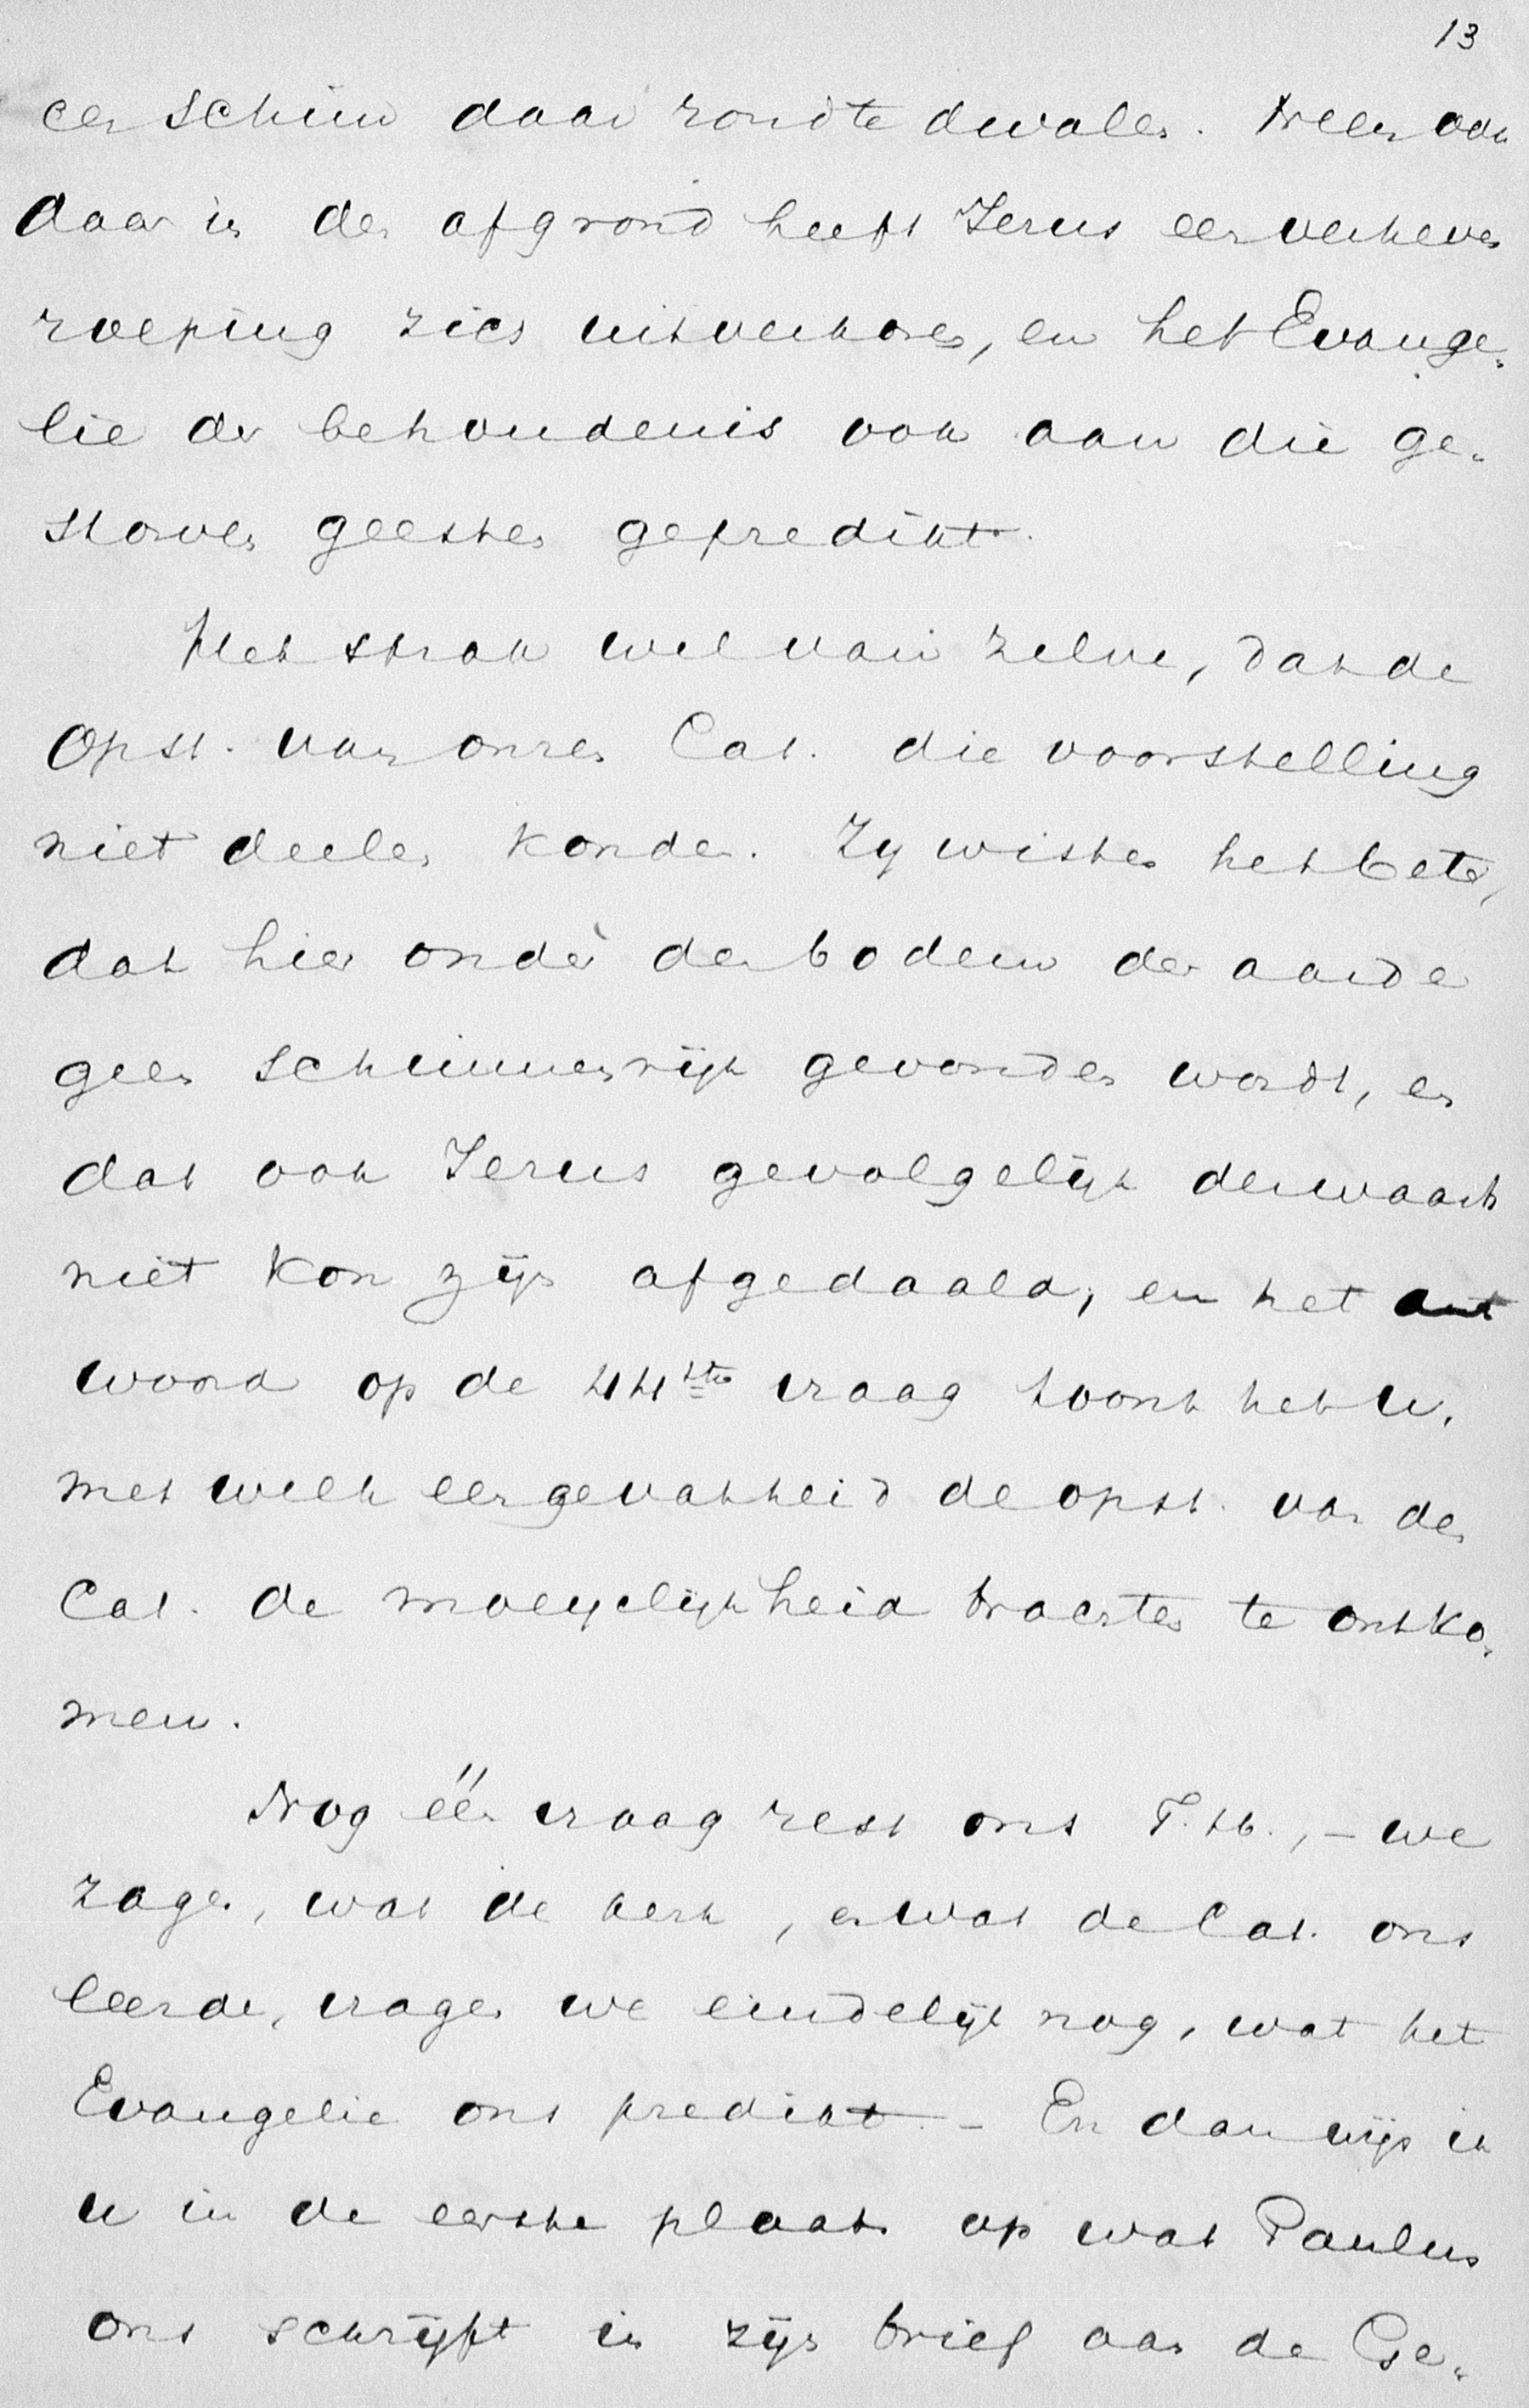 13
een schim daar rond te dwalen. Neen ook
daar in den afgrond heeft Jezus een verheven
roeping zich uitverkoren, en het Evange-
lie der behoudenis ook aan die ge-
storven geesten gepredikt.
Het sprak wel van zelve, dat de
Opst. van onzen Cat. die voorstelling
niet deelen konden. Zij wisten het beter,
dat hier onder den bodem der aarde
geen schimmenrijk gevonden wordt, en
dat ook Jezus gevolgelijk derwaarts
niet kon zijn afgedaald, en het ant
woord op de 44ste vraag toont het u,
met welk een gevatheid de opst. van den
Cat. de moeyelijkheid trachtten te ontko-
men.
Nog één vraag rest ons T.H., – we
zagen, wat de kerk, en wat de Cat. ons
leerde, vragen we eindelijk nog, wat het
Evangelie ons predikt. – En dan wijs ik
u in de eerste plaats op wat Paulus
ons schrijft in zijn brief aan de Ge-